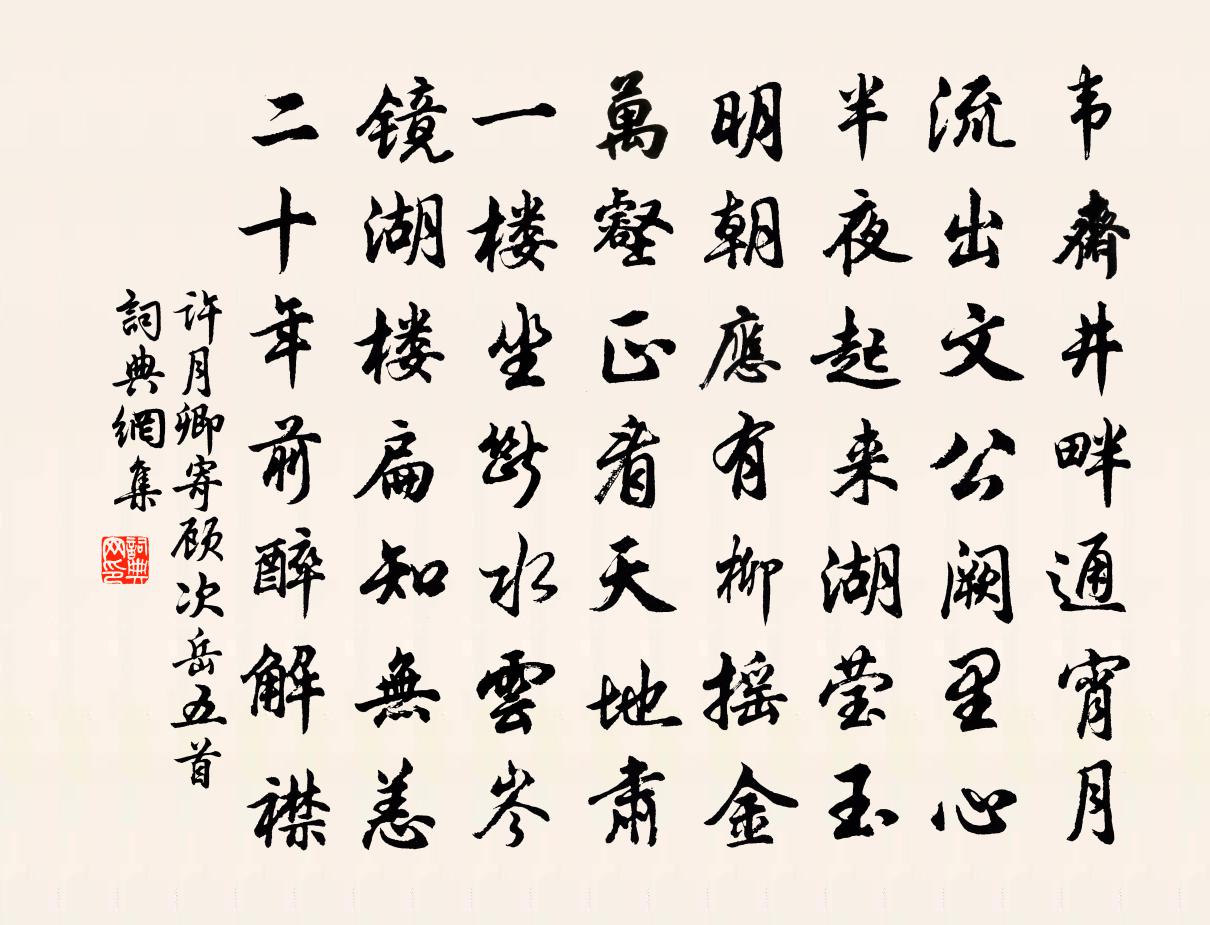 韦齋井畔通宵月
流出文公阙里心
半夜起来湖莹玉
明朝應有柳摇金
萬壑正看天地肅
一楼坐断水雲岑
镜湖楼扁知無恙
二十年前醉解襟
许月卿寄顾次岳五首
詞典網集
詞典網印